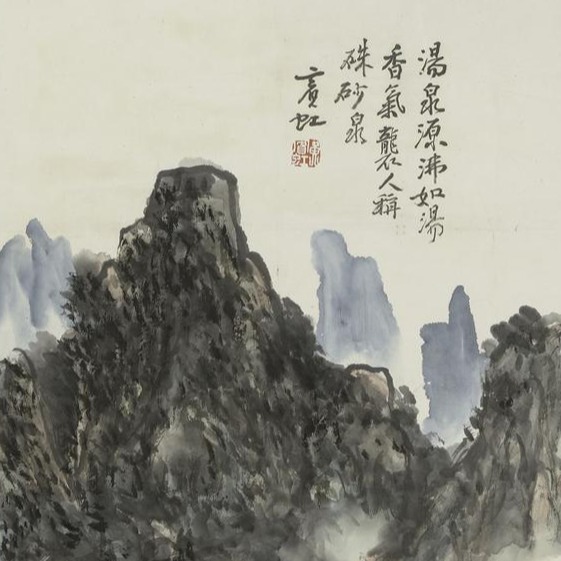 湯泉源沸如湯
香氣襲人稱
硃砂泉
賓虹